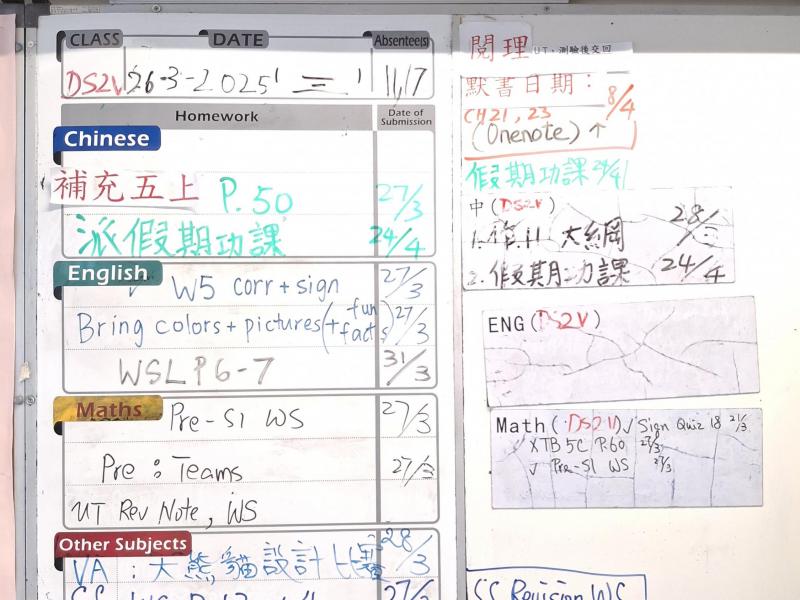 CLASS DATE Absentee(s)
DS2V 26-3-2025 三 11,17
Homework Date of Submission
Chinese
補充五上 P.50 27/3
派假期功課 24/4
English
W5 corr + sign 27/3
Bring colors + pictures (+ fun facts) 27/3
WSL P6-7 31/3
Maths Pre-S1 WS 27/3
Pre : Teams 27/3
UT Rev Note, WS
Other Subjects
VA : 大熊貓設計比賽 28/3
27/3
閱理 UT、測驗後交回
默書日期：
CH21, 23 8/4
(Onenote) ↑
假期功課 24/4
中 (DS2V)
1. 作11 大綱 28/3
2. 假期功課 24/4
ENG (DS2V)
Math (DS2V) √ Sign Quiz 18 21/3
X TB 5C P.60 27/3
√ Pre-S1 WS 27/3
Revision WS